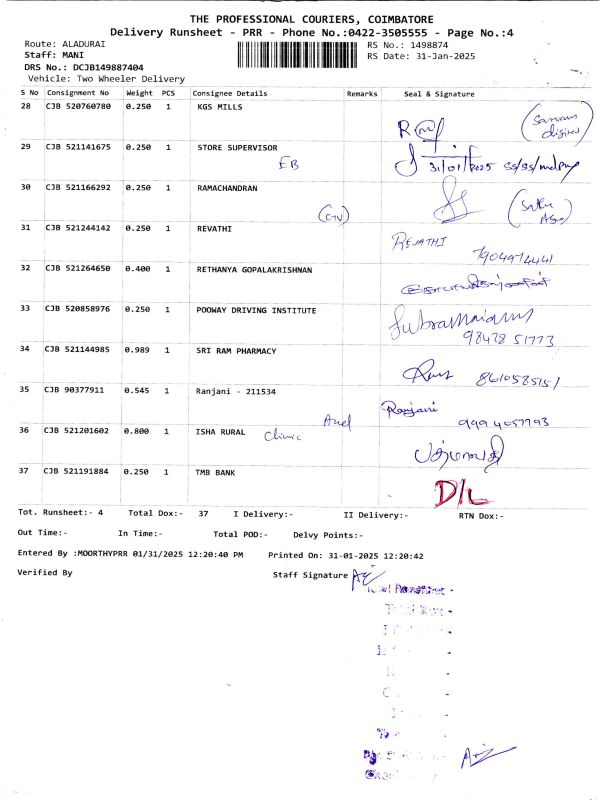 THE PROFESSIONAL COURIERS, COIMBATORE
Delivery Runsheet - PRR - Phone No.:0422-3505555 - Page No.:4
Route: ALADURAI RS No.: 1498874
Staff: MANI RS Date: 31-Jan-2025
DRS No.: DCJB149887404
Vehicle: Two Wheeler Delivery
S No Consignment No Weight PCS Consignee Details Remarks Seal & Signature
28 CJB 520760780 0.250 1 KGS MILLS
29 CJB 521141675 0.250 1 STORE SUPERVISOR
EB 31/01/2025
30 CJB 521166292 0.250 1 RAMACHANDRAN
31 CJB 521244142 0.250 1 REVATHI
REVATHI
7904974441
32 CJB 521264650 0.400 1 RETHANYA GOPALAKRISHNAN
33 CJB 520858976 0.250 1 POOWAY DRIVING INSTITUTE
98428 51773
34 CJB 521144985 0.989 1 SRI RAM PHARMACY
8610585151
35 CJB 90377911 0.545 1 Ranjani - 211534
Ranjani
9994057793
36 CJB 521201602 0.800 1 ISHA RURAL Clinic
37 CJB 521191884 0.250 1 TMB BANK
D/L
Tot. Runsheet:- 4 Total Dox:- 37 I Delivery:- II Delivery:- RTN Dox:-
Out Time:- In Time:- Total POD:- Delvy Points:-
Entered By :MOORTHYPRR 01/31/2025 12:20:40 PM Printed On: 31-01-2025 12:20:42
Verified By Staff Signature